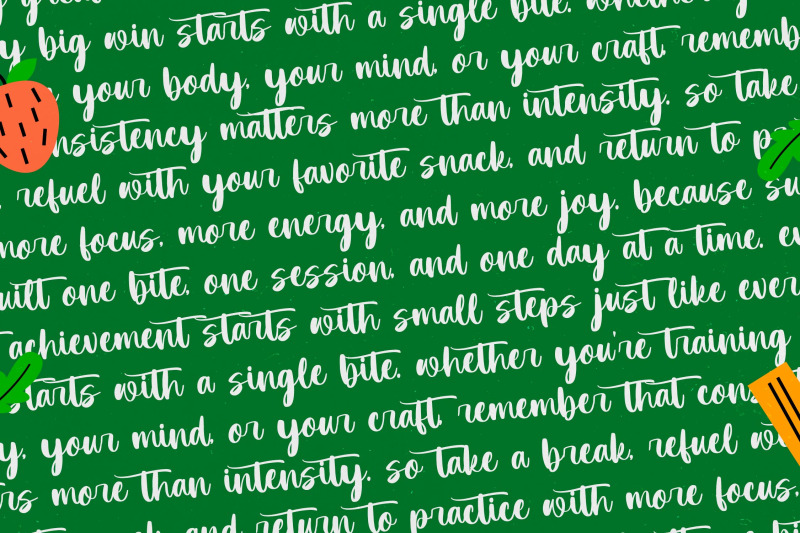 great
y big win starts with a single bite. whether
your body, your mind, or your craft, rememb
nsistency matters more than intensity. so take
, refuel with your favorite snack, and return to p
more focus, more energy, and more joy. because su
uilt one bite, one session, and one day at a time. ev
achievement starts with small steps just like ever
starts with a single bite. whether you're training
y, your mind, or your craft, remember that cons
rs more than intensity. so take a break, refuel w
and return to practice with more focus,